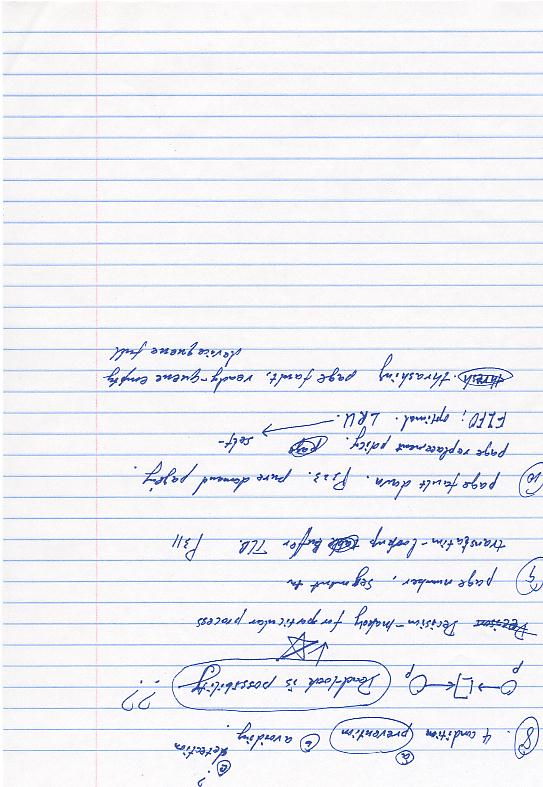 ⓐ ⓒ ?
⑧ 4 condition prevention ⓑ avoiding. detection
P P Deadlock is possibility ??
Decision-making for particular process
⑨ page number, segment
translation-lookup buffer TLB. P311
⑩ page fault down. P323. pure demand paging.
page replacement policy. self-
FIFO; optimal. LRU.
thrashing page fault; ready-queue empty
device queue full